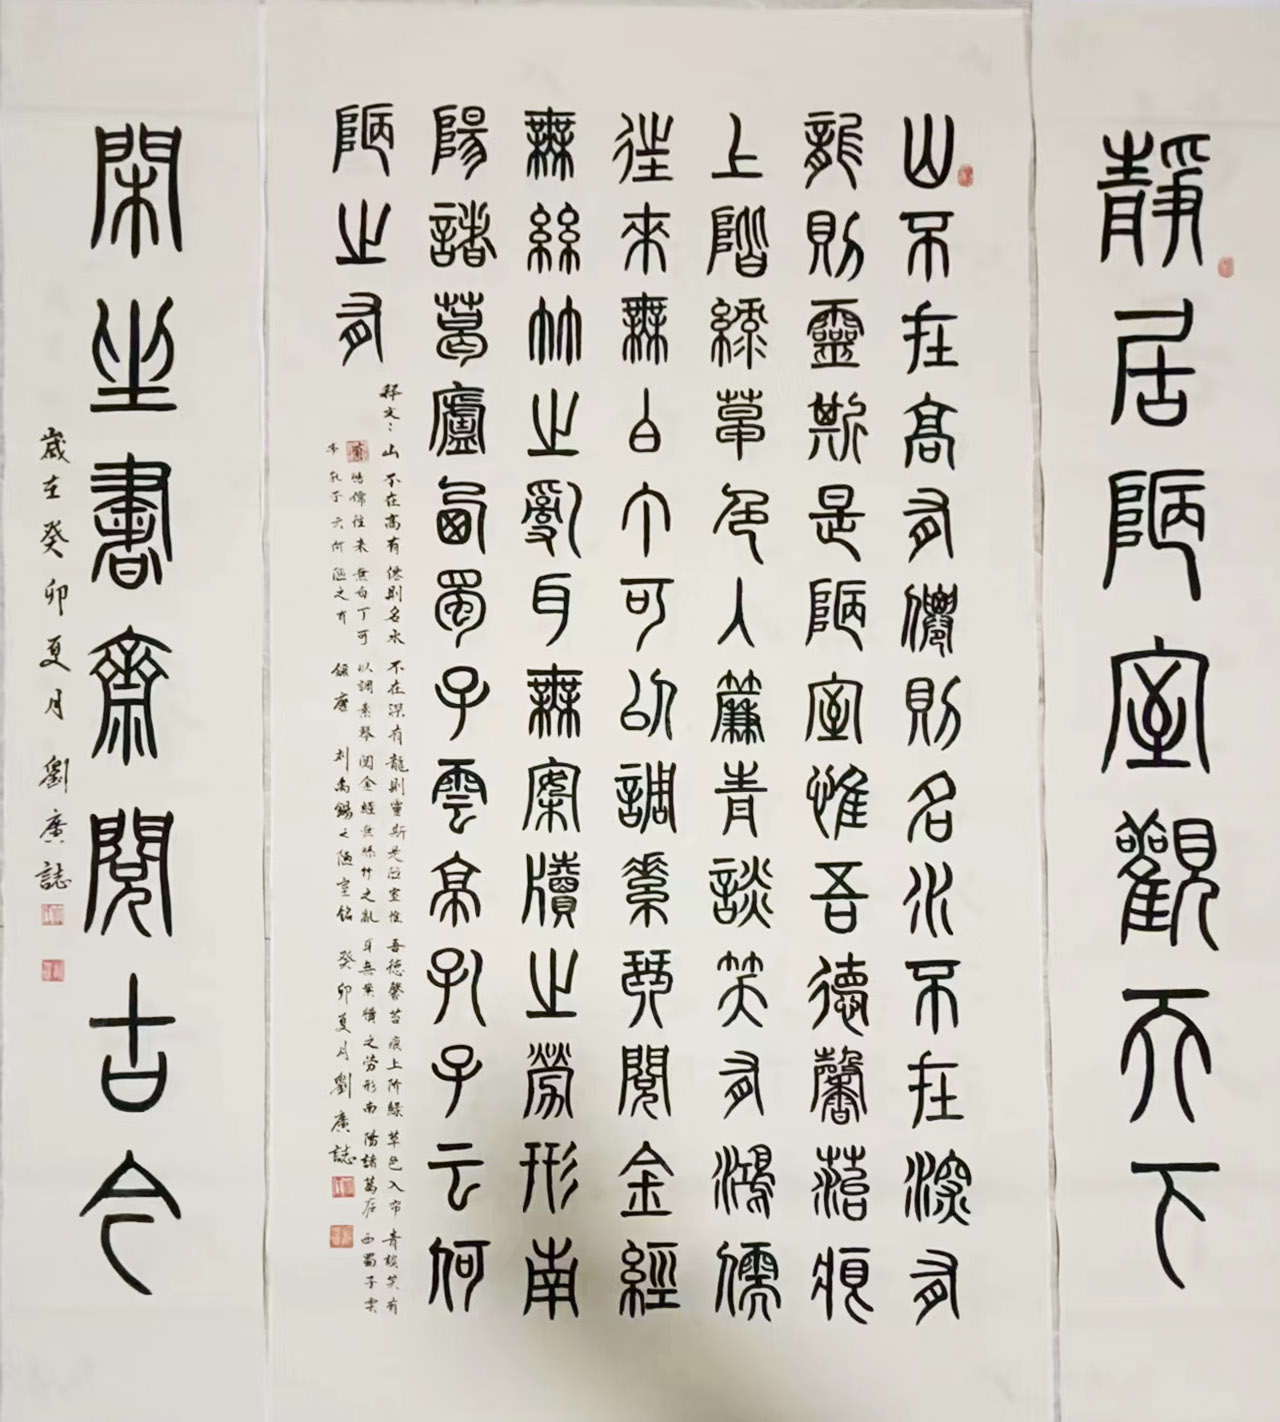 靜居陋室觀天下
山不在高有僊則名水不在深有
龍則靈斯是陋室惟吾德馨苔痕
上階綠草色入簾青談笑有鴻儒
往來無白丁可以調素琴閱金經
無絲竹之亂耳無案牘之勞形南
陽諸葛廬西蜀子雲亭孔子云何
陋之有
释文：山不在高有僊則名水不在深有龍則靈斯是陋室惟吾德馨苔痕上阶綠草色入帘青談笑有
鴻儒往来無白丁可以調素琴閱金經無絲竹之亂耳無案牘之劳形南陽諸葛庐西蜀子雲
亭孔子云何陋之有 錄唐刘禹錫之陋室銘 癸卯夏月劉廣誌
閑坐書齋閱古今
歲在癸卯夏月劉廣誌